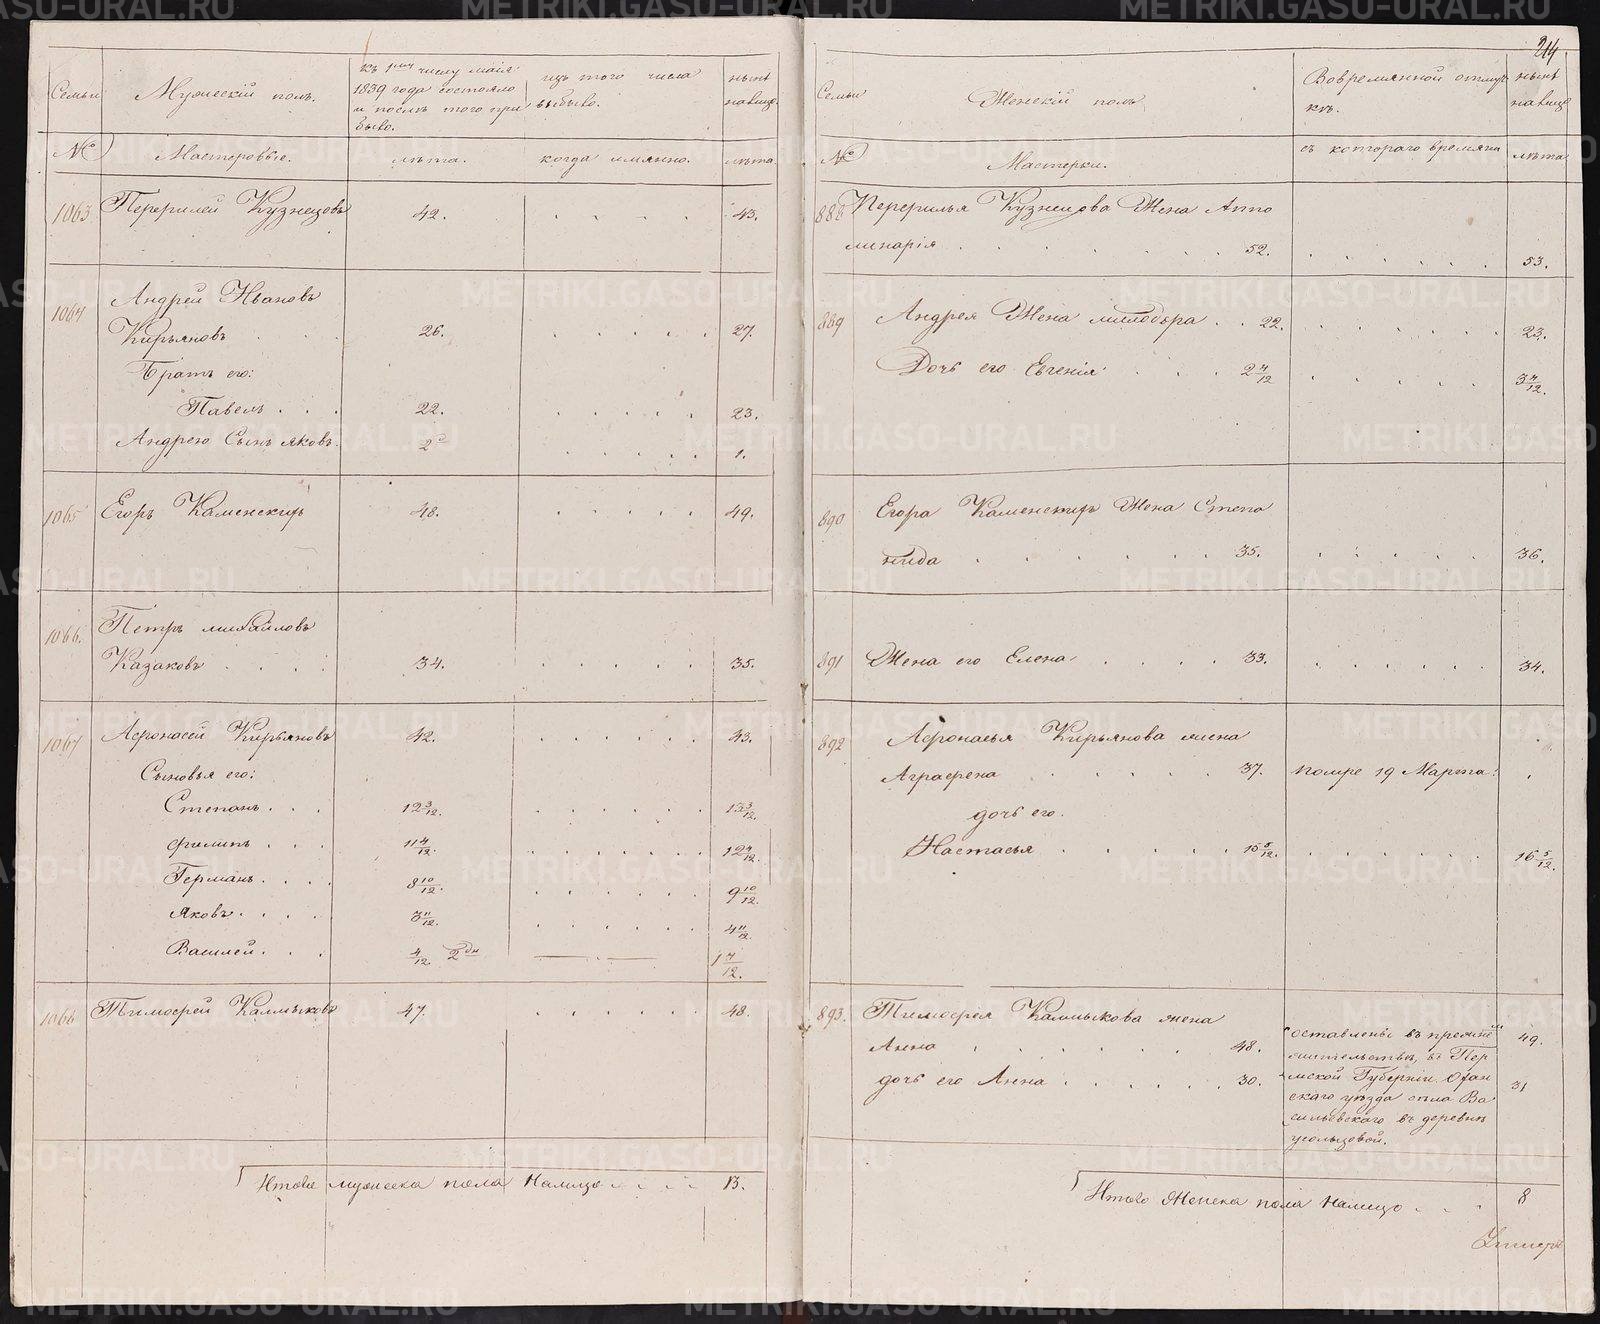 Семьи
Мужескій полъ.
къ 1му числу маія
1839 года состояло
и послѣ того при
было.
изъ того числа
выбыло.
нынѣ
налицо.
№
Мастеровые.
лѣта.
когда имянно.
лѣта
1063 Перфилей Кузнецовъ 42. 43.
1064 Андрей Ивановъ
Кирьяновъ 26. 27.
Братъ его:
Павелъ 22. 23.
Андрею Сынъ яковъ. 1.
1065 Егоръ Каменскихъ 48. 49.
1066. Петръ михайловъ
Казаковъ 34. 35.
1067 Афонасей Кирьяновъ 42. 43.
Сыновья его:
Степанъ 12 3/12. 13 3/12.
филипъ 11 4/12. 12 4/12.
Германъ 8 10/12. 9 10/12.
яковъ 3 11/12. 4 11/12.
Василей 4/12 2 дн 1 4/12.
1068 Тимофей Калмыковъ 47. 48.
Итого мужеска пола Налицо 13.
214
Семьи
Женскій полъ
Вовремянной отлуч
кѣ.
нынѣ
налицо
№
Мастерки.
съ котораго времяни
лѣта
888 Перфилья Кузнецова Жена Аппо
линарія 52. 53.
889 Андрея Жена 22. 23.
Дочь его Евгенія 2 4/12 3 4/12.
890 Егора Каменскихъ Жена Степа
нида 35. 36.
891 Жена его Елена 33. 34.
892 Афонасья Кирьянова жена
Аграфена 37. помре 19 Марта.
дочь его.
Настасья 15 5/12. 16 5/12.
893. Тимофея Калмыкова жена
Анна 48. 49.
дочь его Анна 30. 31
оставлены въ
въ Пер
мской Губерніи Охан
скаго уѣзда села Ва
сильевскаго въ деревни
усольцовой.
Итого Женска пола налицо 8
METRIKI.GASO-URAL.RU